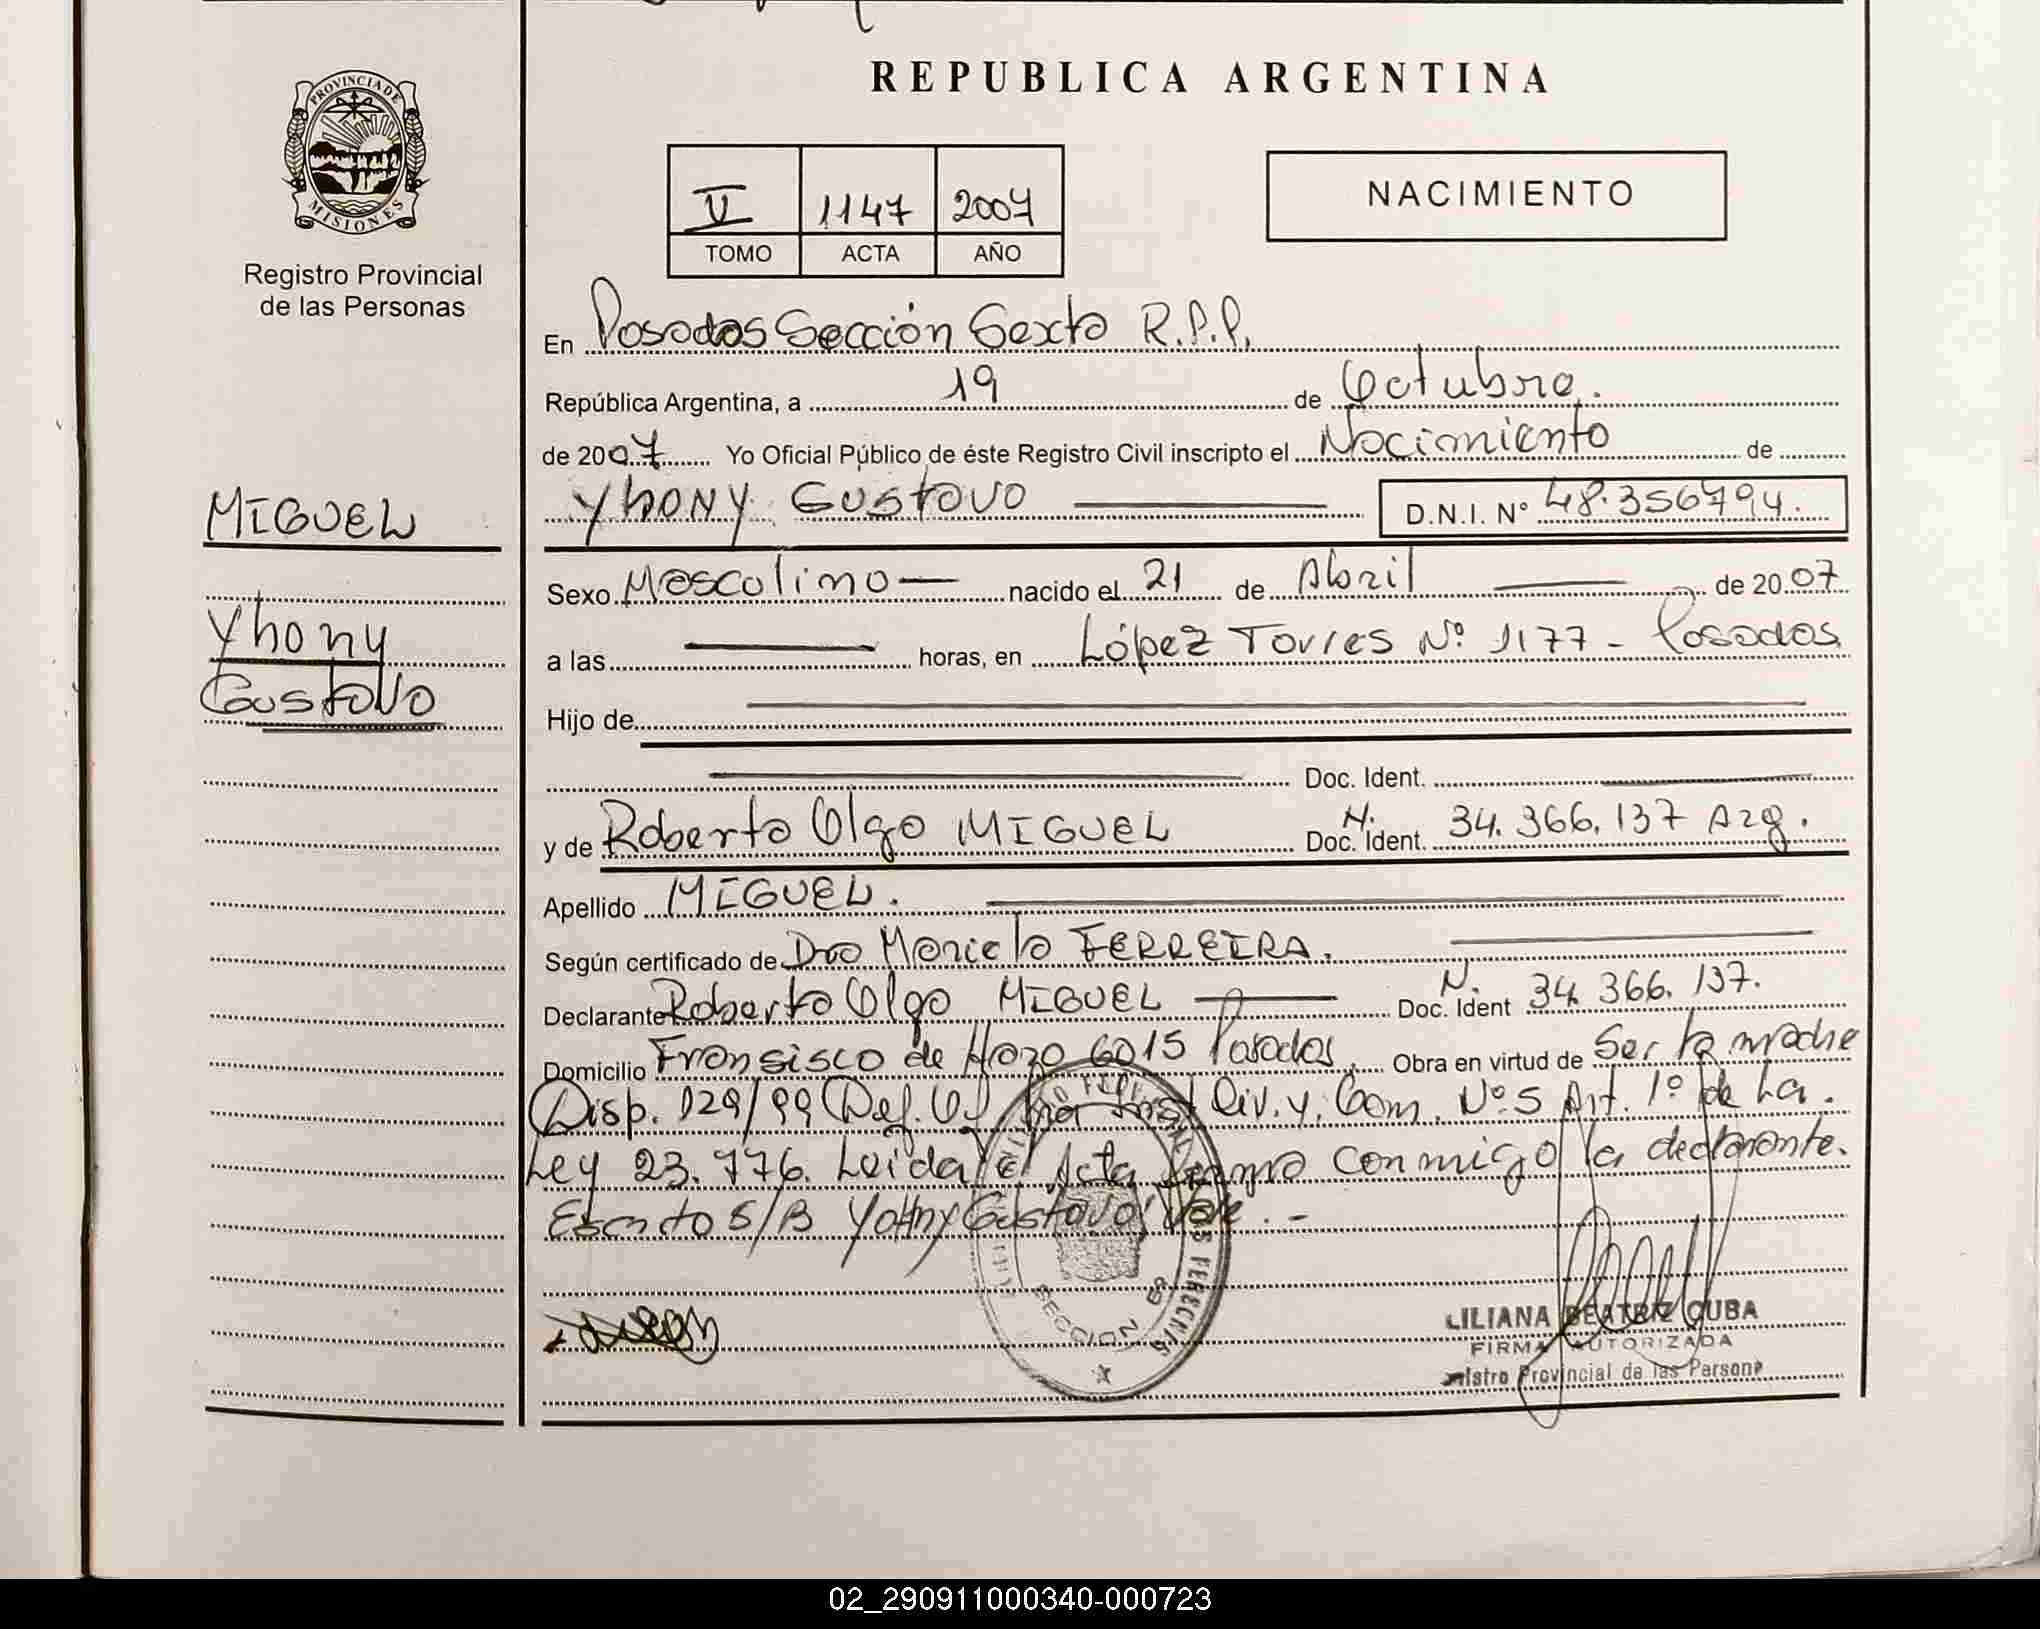 PROVINCIA DE
MISIONES
Registro Provincial
de las Personas
MIGUEL
Yhony
Gustavo
REPUBLICA ARGENTINA
V 1147 2007
TOMO ACTA AÑO
NACIMIENTO
En Posadas Sección Sexta R.P.P.
República Argentina, a 19 de Octubre.
de 2007 Yo Oficial Público de éste Registro Civil inscripto el Nacimiento de
Yhony Gustavo D.N.I. N° 48.356794.
Sexo Masculino nacido el 21 de Abril de 2007
a las horas, en López Torres N° 1177 - Posadas
Hijo de
Doc. Ident.
y de Roberta Olga MIGUEL Doc. N. Ident. 34.366.137 Arg.
Apellido MIGUEL.
Según certificado de Dra Mariela FERREIRA.
Declarante Roberta Olga MIGUEL Doc. N. Ident 34.366.137.
Domicilio Fransisco de Haro 6015 Posadas. Obra en virtud de Ser la madre
Disp. 129/99 Def. Of. Inst Civ. y. Com. N° 5 Art. 1° de La.
Ley 23.776. Leida el Acta firma conmigo la declarante.
Escrito S/B Yohny Gustavo Vale. -
SECCION 6a
LILIANA BEATRIZ CUBA
FIRMA AUTORIZADA
istro Provincial de las Persona
02_290911000340-000723